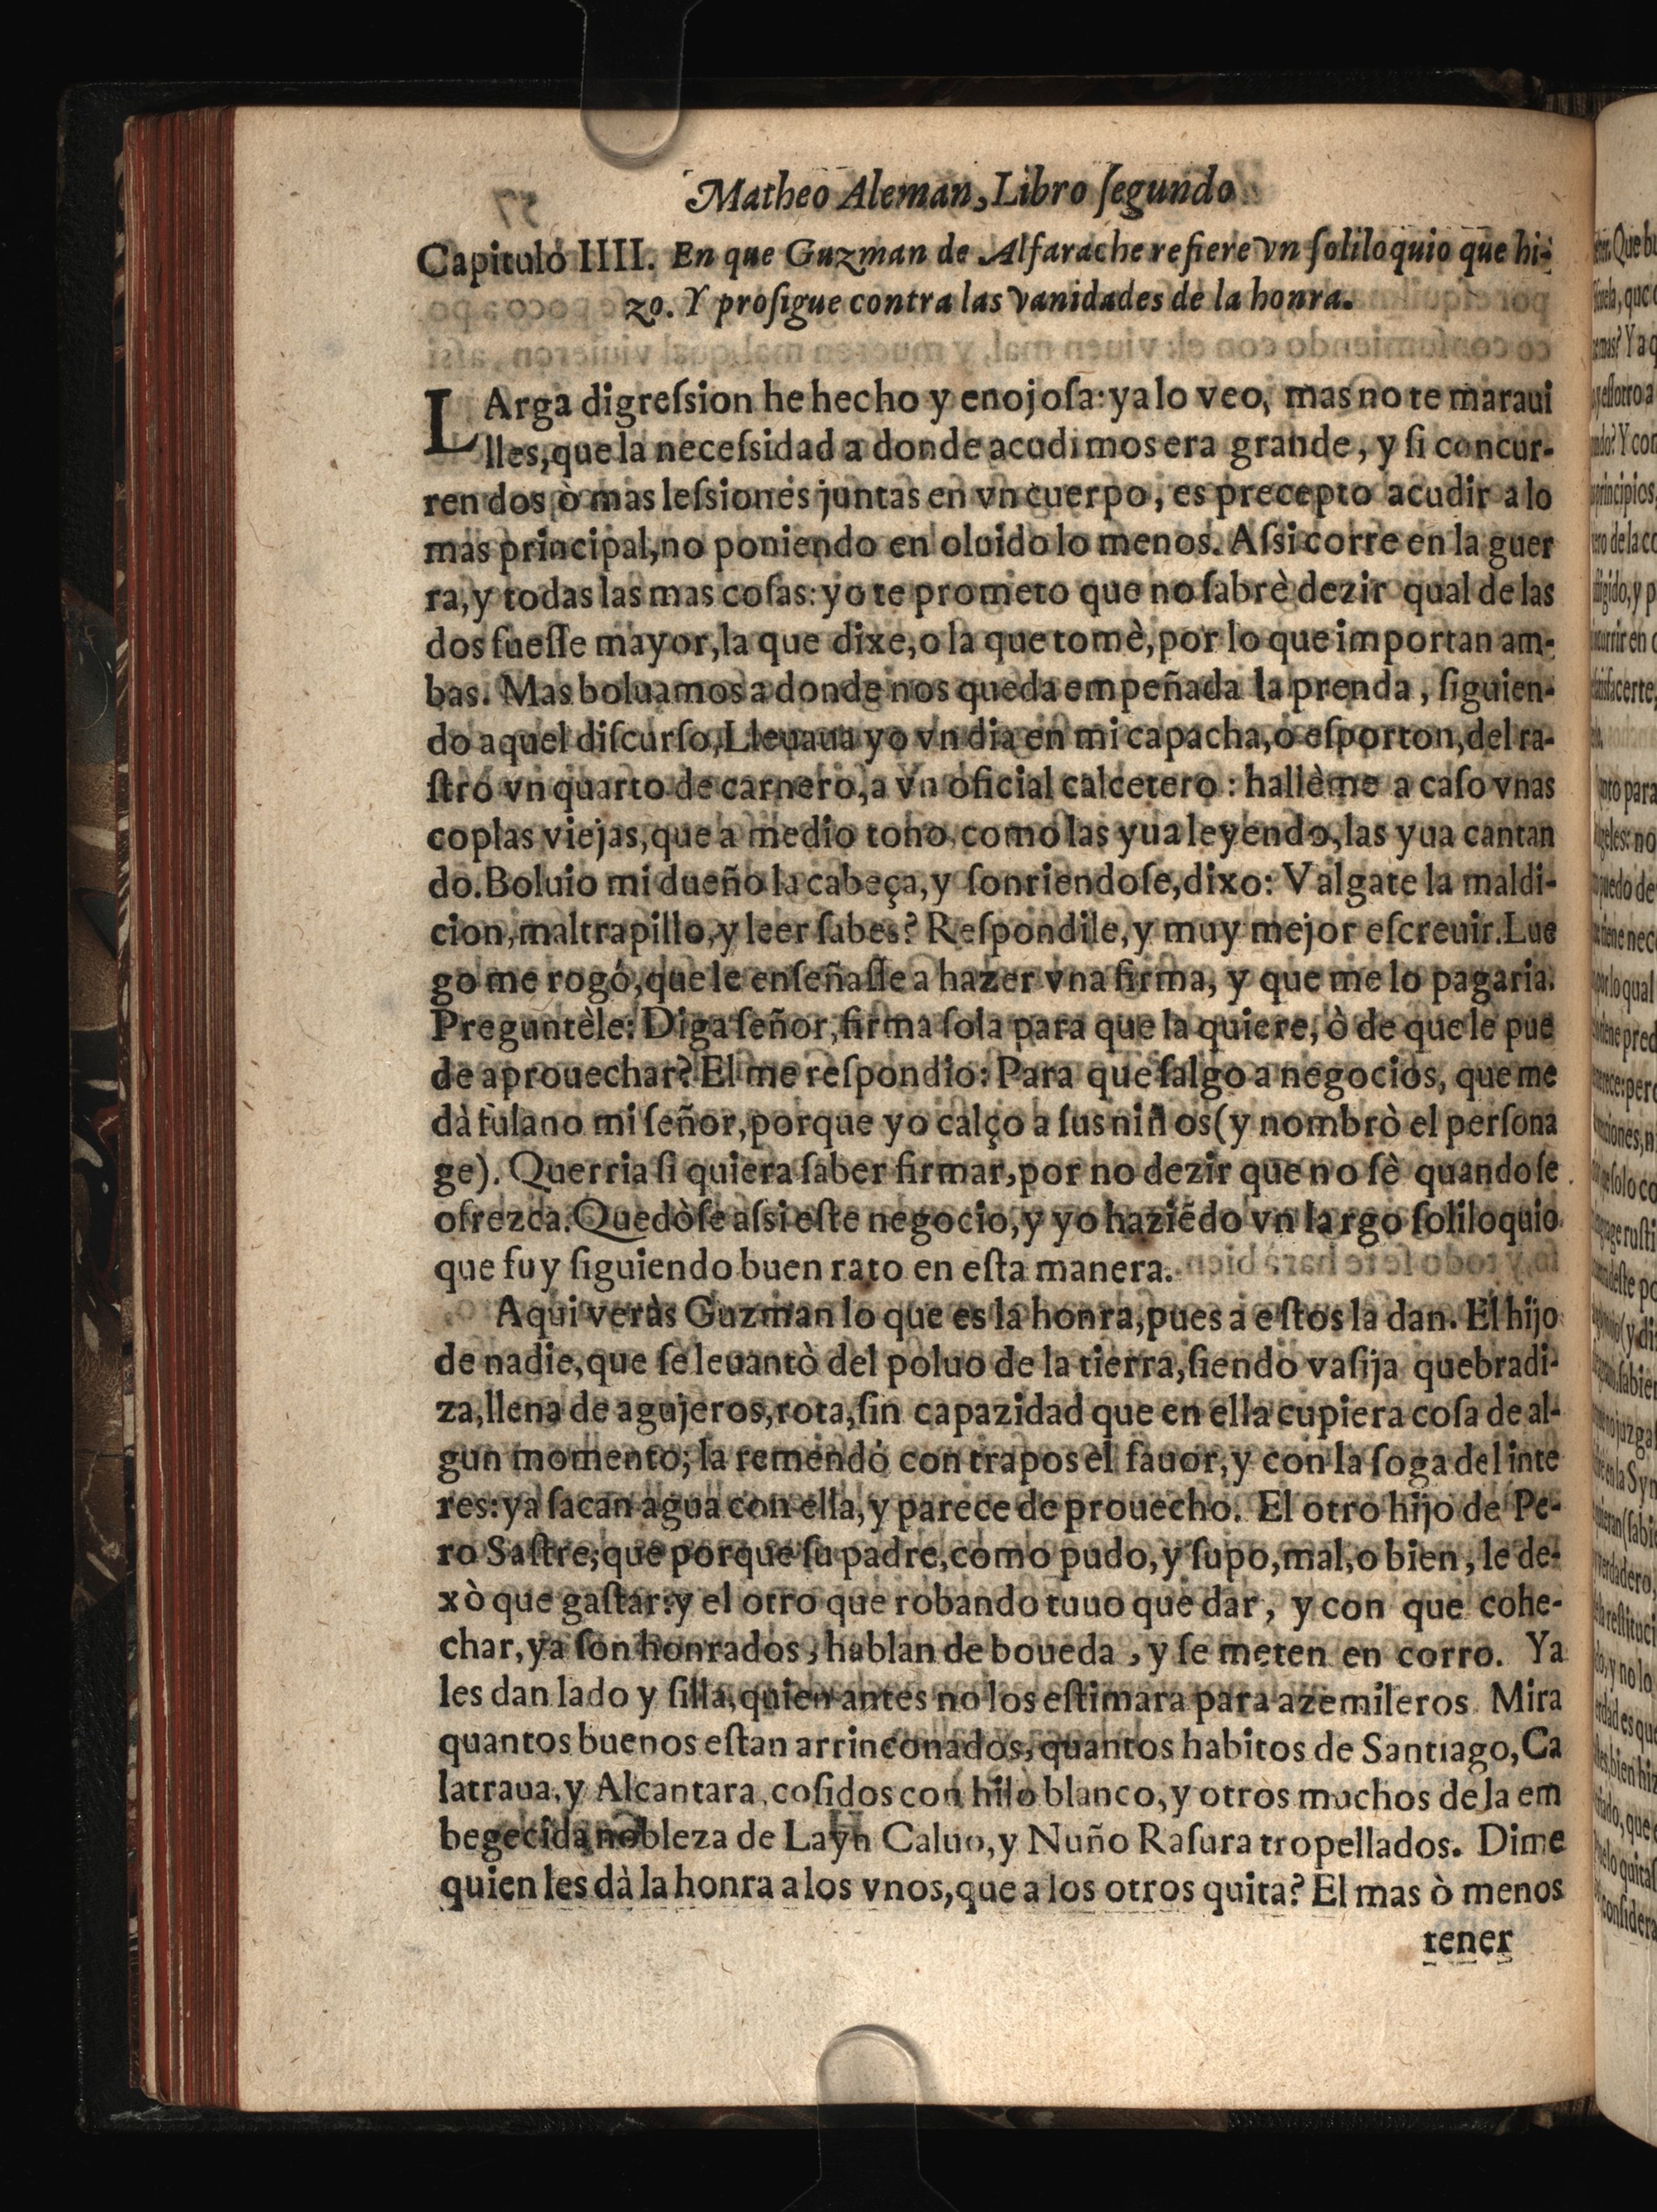 Matheo Aleman, Libro ſegundo
Capitulo IIII. En que Guzman de Alfarache refiere vn ſoliloquio que hi-
zo. Y proſigue contra las vanidades de la honra.
LArga digreſsion he hecho y enojoſa: ya lo veo, mas no te maraui
lles, que la neceſsidad a donde acudimos era grande, y ſi concur-
ren dos, ò mas leſsiones juntas en vn cuerpo, es precepto acudir a lo
mas principal, no poniendo en oluido lo menos. Aſsi corre en la guer
ra, y todas las mas coſas: yo te prometo que no ſabrè dezir qual de las
dos fueſſe mayor, la que dixe, o la que tomè, por lo que importan am-
bas. Mas boluamos a donde nos queda empeñada la prenda, ſiguien-
do aquel diſcurſo, Lleuaua yo vn dia en mi capacha, o eſporton, del ra-
ſtro vn quarto de carnero, a vn oficial calcetero: hallème a caſo vnas
coplas viejas, que a medio tono, como las yua leyendo, las yua cantan
do. Boluio mi dueño la cabeça, y ſonriendoſe, dixo: Valgate la maldi-
cion, maltrapillo, y leer ſabes? Reſpondile, y muy mejor eſcreuir. Lue
go me rogó, que le enſeñaſſe a hazer vna firma, y que me lo pagaria.
Preguntèle: Diga ſeñor, firma ſola para que la quiere, ò de que le pue
de aprouechar? El me reſpondio: Para que ſalgo a negocios, que me
dà fulano mi ſeñor, porque yo calço a ſus niños (y nombrò el perſona
ge). Querria ſi quiera ſaber firmar, por no dezir que no sè quando ſe
ofrezca. Quedòſe aſsi eſte negocio, y yo haziẽdo vn largo ſoliloquio
que fuy ſiguiendo buen rato en eſta manera.
Aqui veràs Guzman lo que es la honra, pues a eſtos la dan. El hijo
de nadie, que ſe leuantò del poluo de la tierra, ſiendo vaſija quebradi-
za, llena de agujeros, rota, ſin capazidad que en ella cupiera coſa de al-
gun momento; la remendó con trapos el fauor, y con la ſoga del inte
res: ya ſacan agua con ella, y parece de prouecho. El otro hijo de Pe-
ro Saſtre, que porque ſu padre, como pudo, y ſupo, mal, o bien, le de-
xò que gaſtar: y el otro que robando tuuo que dar, y con que cohe-
char, ya ſon honrados, hablan de boueda, y ſe meten en corro. Ya
les dan lado y ſilla, quien antes no los eſtimara para azemileros. Mira
quantos buenos eſtan arrinconados, quantos habitos de Santiago, Ca
latraua, y Alcantara, coſidos con hilo blanco, y otros muchos de la em
begecida nobleza de Layn Caluo, y Nuño Raſura tropellados. Dime
quien les dà la honra a los vnos, que a los otros quita? El mas ò menos
tener